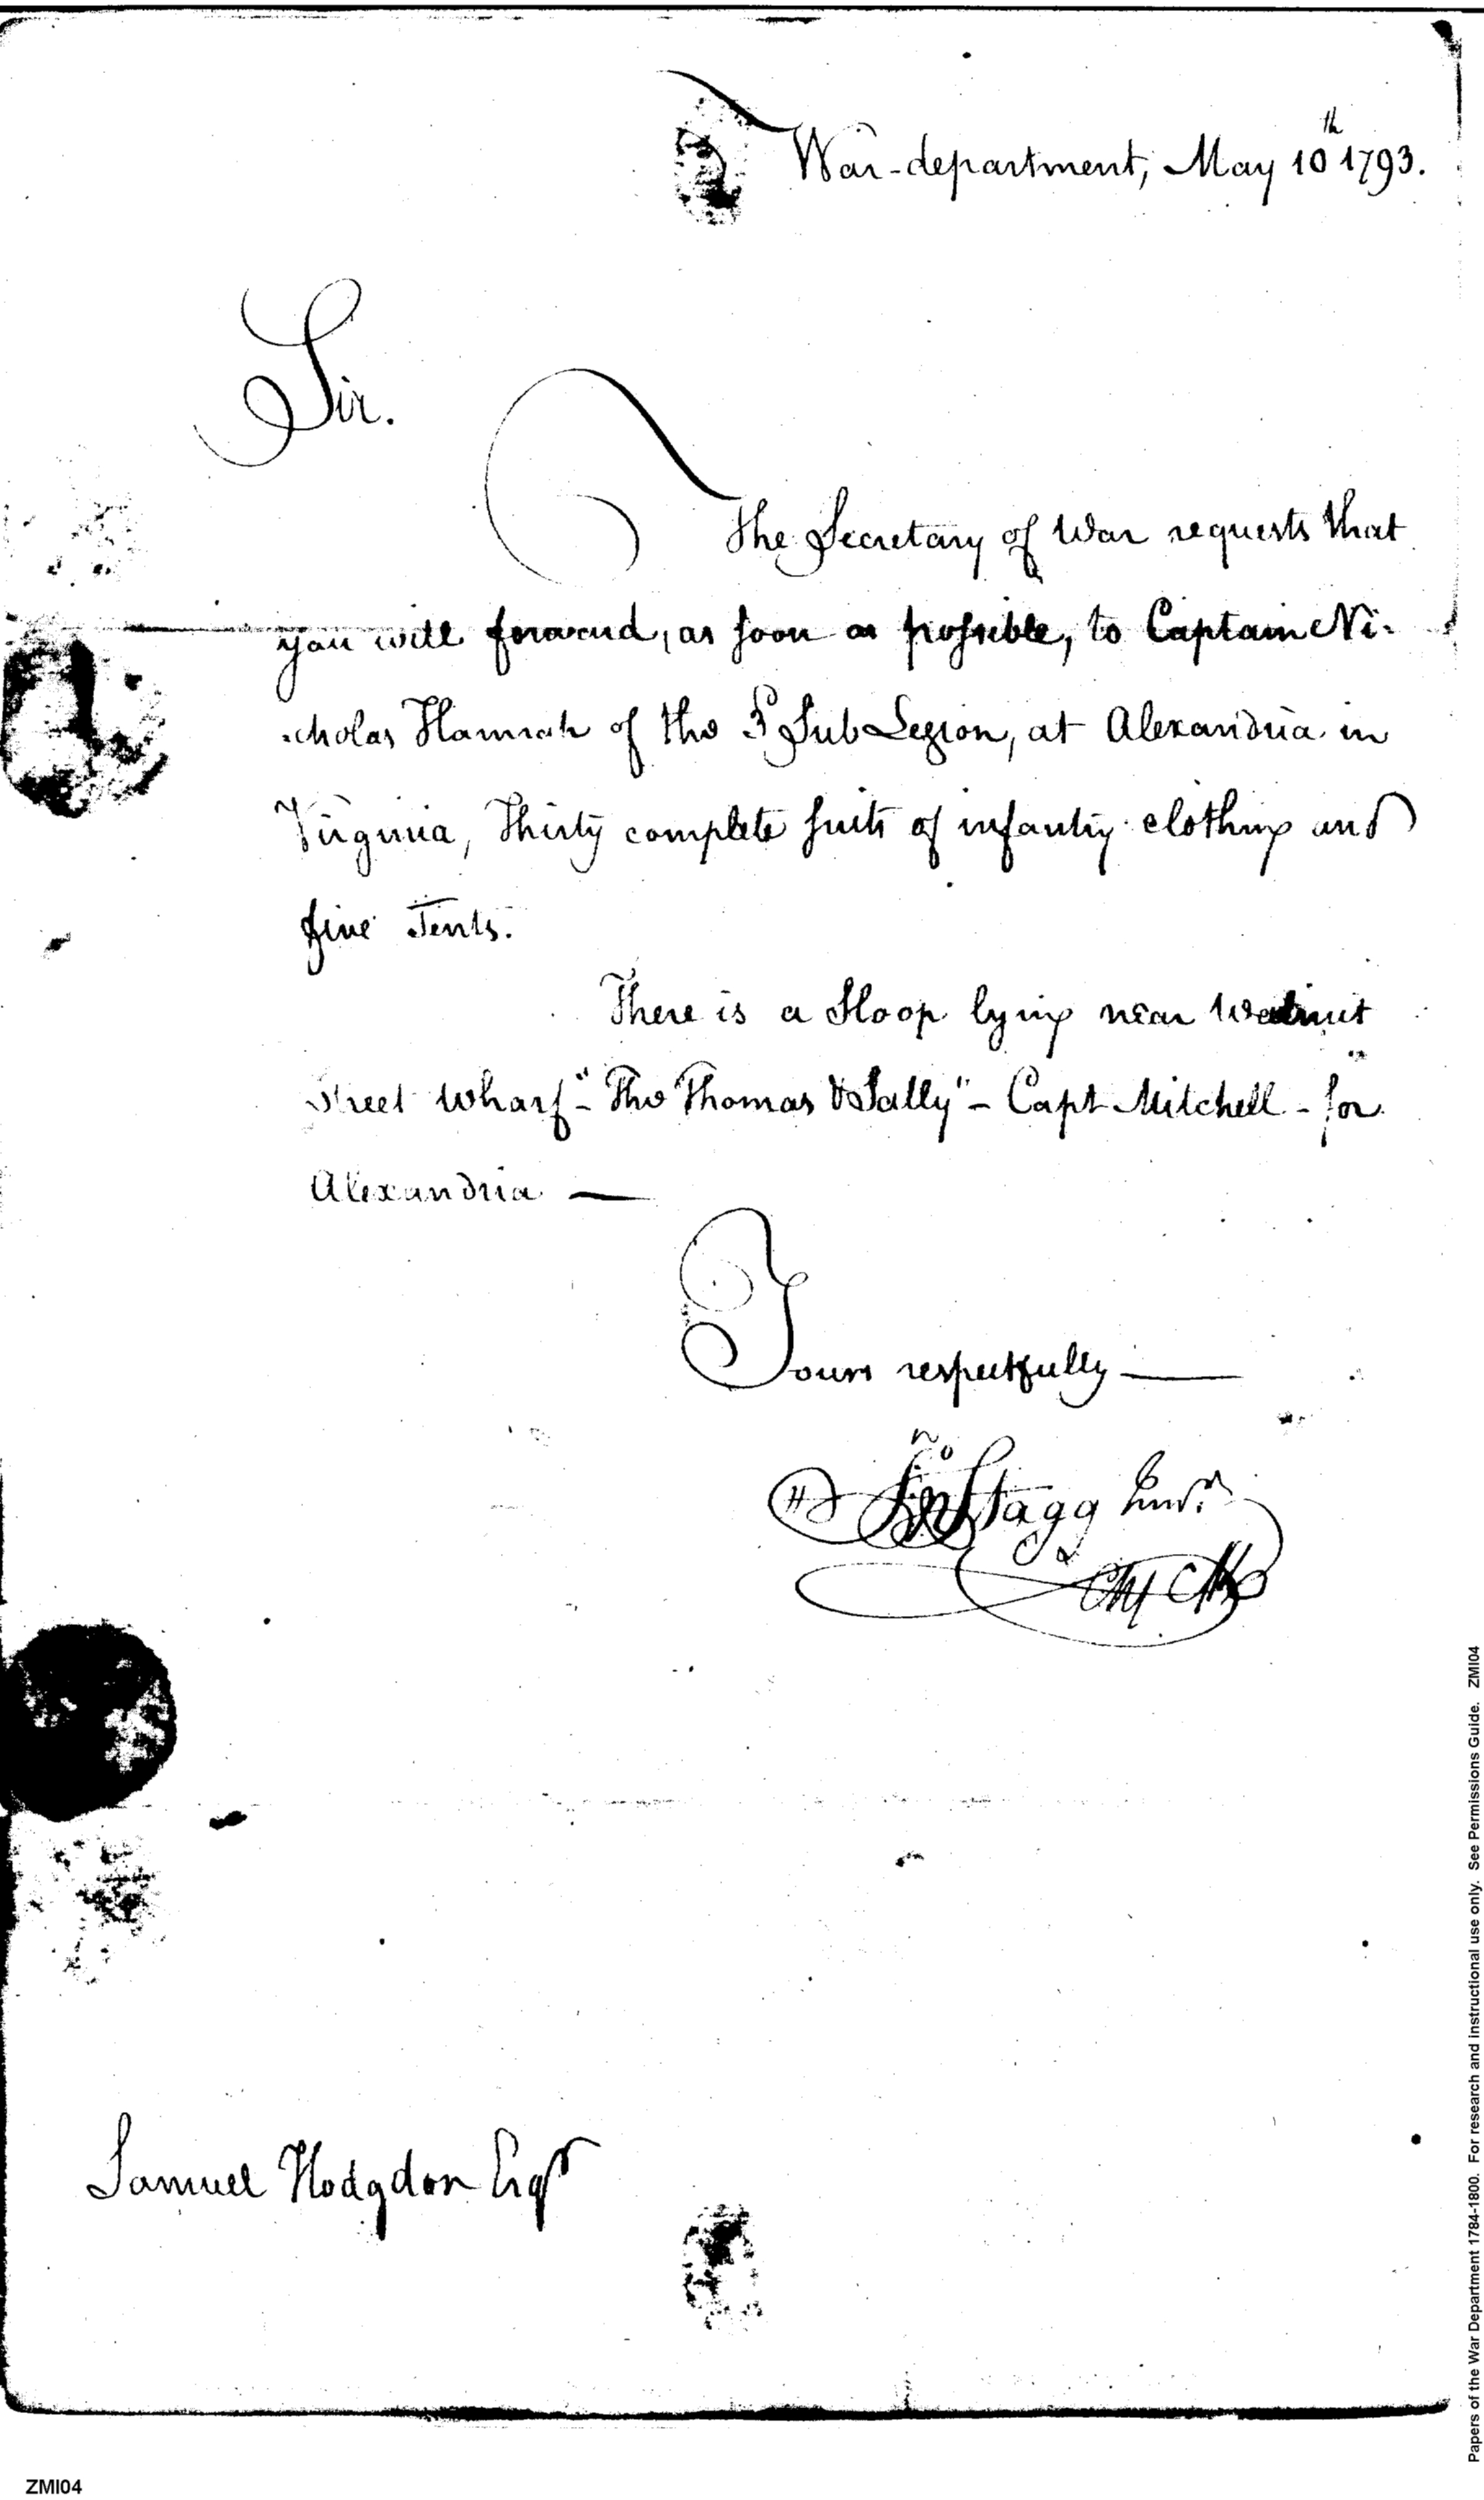 War-department, May 10th 1793.
Sir.
The Secretary of War requests that
you will forward, as soon as possible, to Captain Ni-
-cholas Hannah of the 3d Sub Legion, at Alexandria in
Virginia, Thirty complete suits of infantry clothing and
five Tents.
There is a Sloop lying near Walnut
street wharf "- The Thomas & Sally" - Capt Mitchell - for
Alexandria —
Yours respectfully —
Jno Stagg Junr
Samuel Hodgdon Esqr
Papers of the War Department 1784-1800. For research and instructional use only. See Permissions Guide. ZMI04
ZMI04